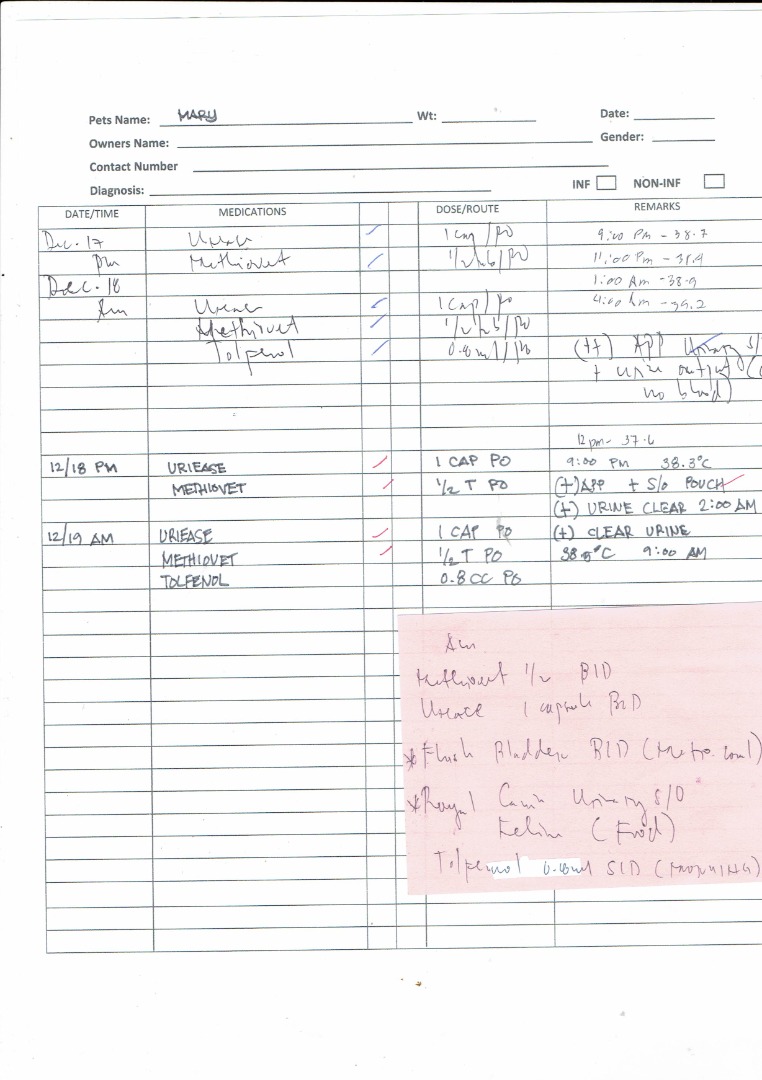 Pets Name: MARY Wt: Date:
Owners Name: Gender:
Contact Number
Diagnosis: INF NON-INF
DATE/TIME MEDICATIONS DOSE/ROUTE REMARKS
Dec. 17 1 cap / PO 9:00 PM - 38.7
pm Methiovet 1/2 tab / PO 11:00 PM -
Dec. 18 1:00 AM - 38.9
Am 1 cap / PO 4:00 Am - 39.2
Methiovet 1/2 tab / PO
0.8 ml / PO (++) APP Urinary S/
+ urine output
no blood)
12pm - 37.6
12/18 PM URIEASE 1 CAP PO 9:00 PM 38.3°C
METHIOVET 1/2 T PO (+) APP + S/O POUCH
(+) URINE CLEAR 2:00 AM
12/19 AM URIEASE 1 CAP PO (+) CLEAR URINE
METHIOVET 1/2 T PO 38.5°C 9:00 AM
TOLFENOL 0.8 CC PO
Am
Methiovet 1/2 BID
1 capsule BID
* Flush Bladder BID (
* Royal Canin Urinary S/O
Feline (Food)
SID (MORNING)